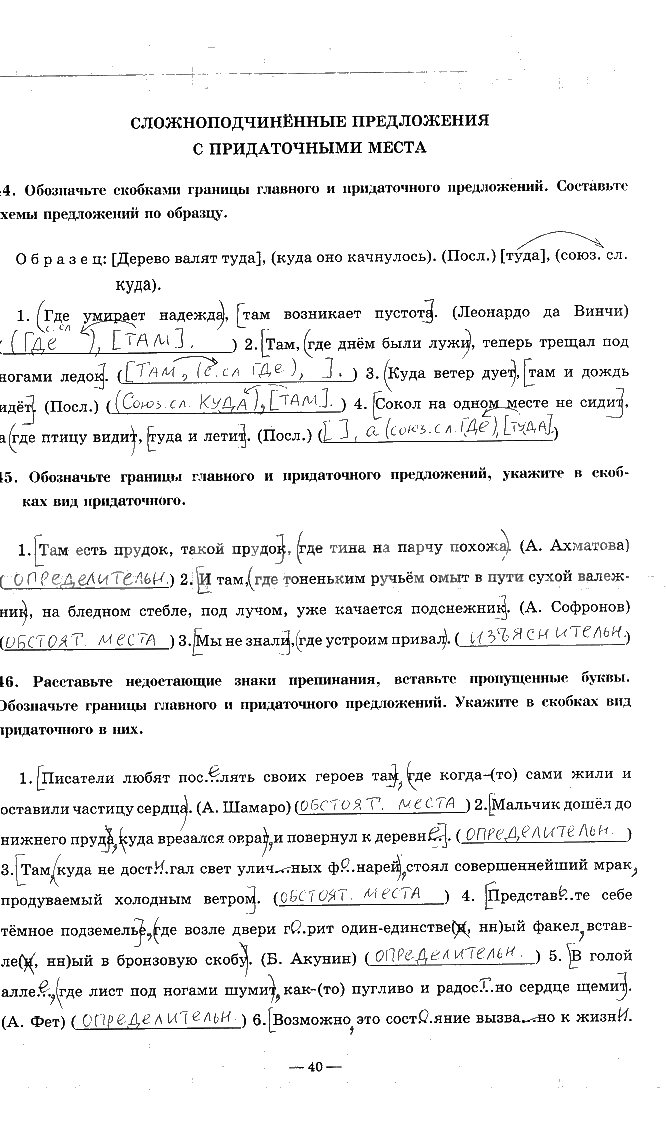 СЛОЖНОПОДЧИНЁННЫЕ ПРЕДЛОЖЕНИЯ
С ПРИДАТОЧНЫМИ МЕСТА
44. Обозначьте скобками границы главного и придаточного предложений. Составьте
хемы предложений по образцу.
Образец: [Дерево валят туда], (куда оно качнулось). (Посл.) [туда], (союз. сл.
куда).
1. (Где умирает надежда), [там возникает пустота]. (Леонардо да Винчи)
((ГДе с. сл), [ТАМ].) 2. [Там, (где днём были лужи), теперь трещал под
ногами ледок]. ([ТАМ, (с.сл ГДе), ].) 3. (Куда ветер дует), [там и дождь
идёт]. (Посл.) ((Союз.сл. КУДА), [ТАМ].) 4. [Сокол на одном месте не сидит],
а (где птицу видит), [туда и летит]. (Посл.) ([ ], а (союз.сл.ГДе), [ТУДА].)
45. Обозначьте границы главного и придаточного предложений, укажите в скоб-
ках вид придаточного.
1. [Там есть прудок, такой прудок], (где тина на парчу похожа). (А. Ахматова)
(ОПРеДеЛИТеЛЬН.) 2. [И там, (где тоненьким ручьём омыт в пути сухой валеж-
ник), на бледном стебле, под лучом, уже качается подснежник]. (А. Софронов)
(ОБСТОЯТ. МеСТА) 3. [Мы не знали], (где устроим привал). (ИЗЪЯСНИТеЛЬН.)
46. Расставьте недостающие знаки препинания, вставьте пропущенные буквы.
Обозначьте границы главного и придаточного предложений. Укажите в скобках вид
придаточного в них.
1. [Писатели любят пос.е.лять своих героев там], (где когда-(то) сами жили и
оставили частицу сердца). (А. Шамаро) (ОБСТОЯТ. МеСТА) 2. [Мальчик дошёл до
нижнего пруда, (куда врезался овраг), и повернул к деревне.]. (ОПРеДеЛИТеЛЬН.)
3. [Там, (куда не дост.И.гал свет улич...ных ф.О.нарей), стоял совершеннейший мрак,
продуваемый холодным ветром]. (ОБСТОЯТ. МеСТА) 4. [Представ.Ь.те себе
тёмное подземелье.], (где возле двери г.О.рит один-единстве(н, нн)ый факел, встав-
ле(н, нн)ый в бронзовую скобу). (Б. Акунин) (ОПРеДеЛИТеЛЬН.) 5. [В голой
алле.е., (где лист под ногами шумит), как-(то) пугливо и радос.Т.но сердце щемит].
(А. Фет) (ОПРеДеЛИТеЛЬН.) 6. [Возможно, это сост.О.яние вызва...но к жизн.И.
— 40 —